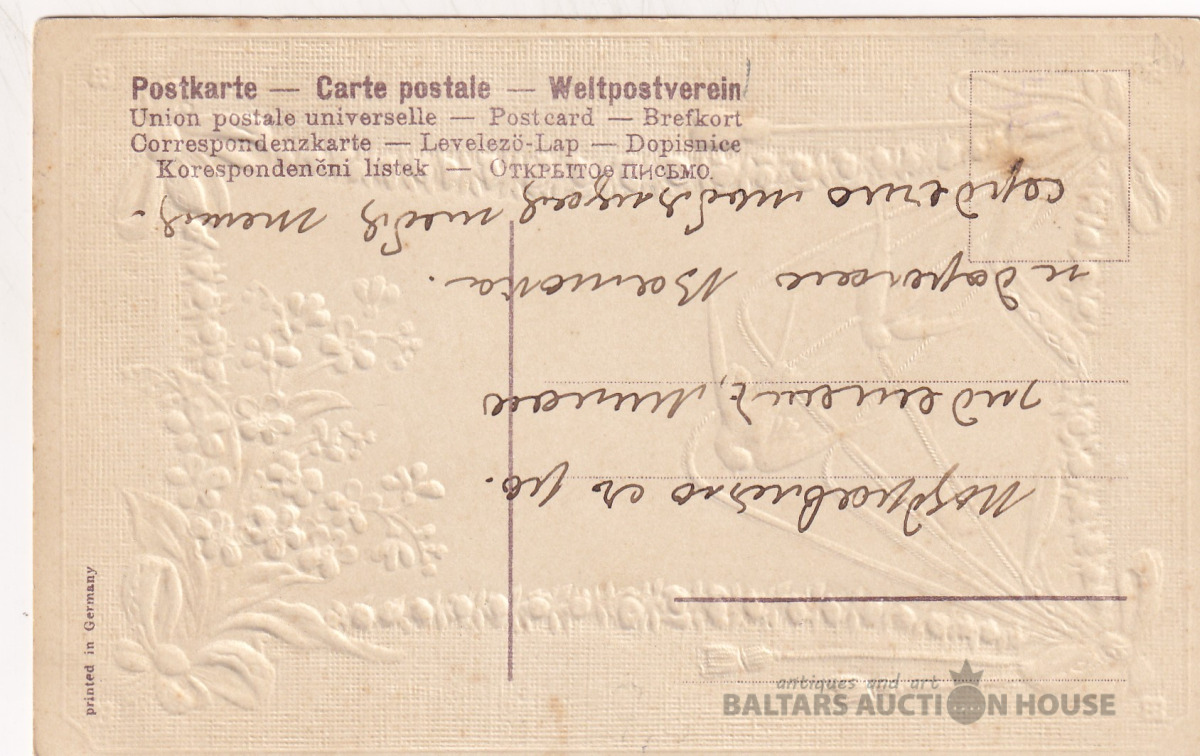 Postkarte — Carte postale — Weltpostverein
Union postale universelle — Postcard — Brefkort
Correspondenzkarte — Levelezö-Lap — Dopisnice
Korespondenčni lístek — Открытое письмо.
Поздравляю съ ро.
жденiемъ, Милая
и дорогая
сердечно тебѣ
printed in Germany
antiques and art
BALTARS AUCTION HOUSE